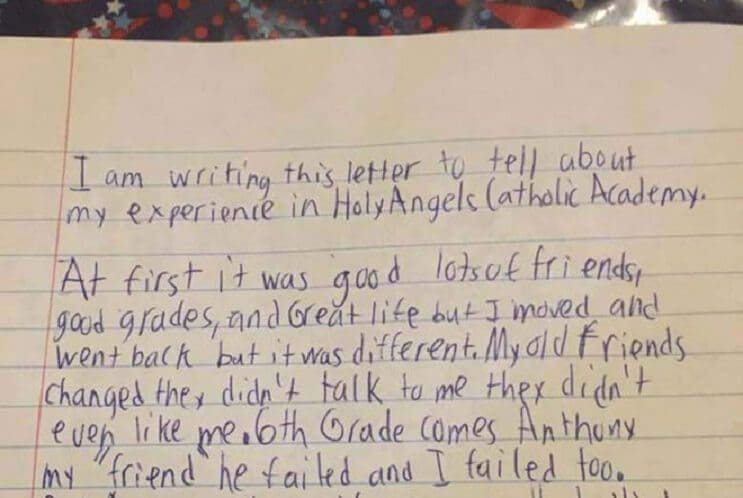 I am writing this letter to tell about
my experience in Holy Angels Catholic Academy.
At first it was good lots of friends,
good grades, and Great life but I moved and
went back but it was different. My old friends
changed they didn't talk to me they didn't
even like me. 6th Grade comes Anthony
my "friend" he failed and I failed too.